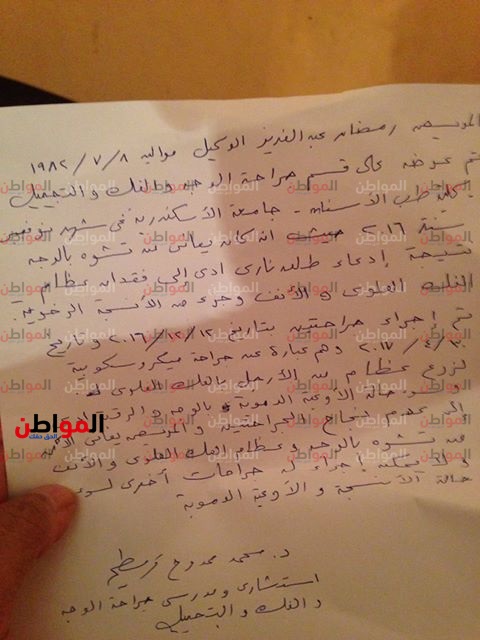 المريض رمضان عبد العزيز الوكيل مواليد ١٩٨٢/٧/٨
تم عرضه على قسم جراحة الوجه والفك والتجميل
بكلية طب الأسنان - جامعة الأسكندرية في شهر نوفمبر
سنة ٢٠١٦ حيث انه كان يعاني من تشوه بالوجه
نتيجة إدعاء طلق ناري ادى إلى فقدان عظام
الفك العلوى و الأنف وجزء من الأنسجة الرخوية.
تم اجراء جراحتين بتاريخ ٢٠١٦/١٢/١٢ وتاريخ
٢٠١٧/٤/ وهم عبارة عن جراحة ميكروسكوبية
لزرع عظام من الأرجل بالفك العلوى
حالة الأوعية الدموية بالوجه و الرقبة
إلى عدم نجاح الجراحتين و المريض يعاني
من تشوه بالوجه و عظام الفك العلوى و الأنف
و لا يمكن اجراء له جراحات أخرى لسوء
حالة الأنسجة و الأوعية الدموية
د. محمد ممدوح
استشارى ومدرس جراحة الوجه
والفك والتجميل
المواطن